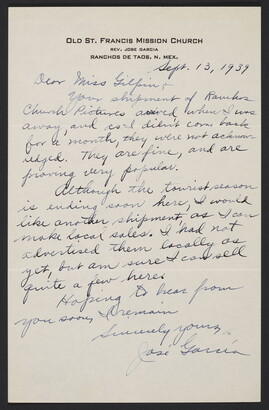 OLD ST. FRANCIS MISSION CHURCH
REV. JOSE GARCIA
RANCHOS DE TAOS, N. MEX.
Sept. 13, 1939
Dear Miss Gilpin:
Your shipment of Ranchos
Church Pictures arrived when I was
away, and as I didn't come back
for a month, they were not acknow-
ledged. They are fine, and are
proving very popular.
Although the tourist season
is ending soon here, I would
like another shipment, as I can
make local sales. I had not
advertised them locally as
yet, but am sure I can sell
quite a few here.
Hoping to hear from
you soon, I remain
Sincerely yours,
José Garcia